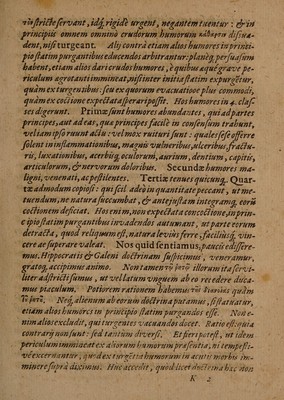 districte servant, idq; rigidè urgent, negantem tuentur: & in
principiis omnem omninò crudorum humorum κάθαρσιν dissua-
dent, nisi turgeant. Alij contrà etiam alios humores in princi-
pio statim purgantibus educendos arbitrantur: planéq; persuasum
habent, etiam alios dari crudos humores, è quibus aequè grave pe-
riculum aegrotanti immineat, nisi inter initia statim expurgetur,
quàm ex turgentibus: seu ex quorum evacuatione plus commodi,
quàm ex coctione expectata sperari possit. Hos humores in 4. clas-
ses digerunt. Primae sunt humores abundantes, qui ad partes
principes, aut ad eas, qua principes facilè in consensum trahunt,
vel iam ipso ruunt actu: vel mox ruituri sunt: quales sese offerre
solent in inflammationibus, magnis vulneribus, ulceribus, fractu-
ris, luxationibus, acerbiq; oculorum, aurium, dentium, capitis,
articulorum, & nervorum doloribus. Secundae humores ma-
ligni, venenati, ac pestilentes. Tertiae tenues quicunq;. Quar-
tae admodum copiosi: qui scil. adeò in quantitate peccant, ut me-
tuendum, ne natura succumbat, & ante justam integramq, eorũ
coctionem deficiat. Hos enim, non expectata concoctione, in prin-
cipio statim purgantibus invadendos autumant, ut parte eorum
detracta, quod reliquum est, natura levius ferre, faciliusq; vin-
cere ac superare valeat. Nos quid sentiamus, paucis dissere-
mus. Hippocratis & Galeni doctrinam suspicimus, veneramur,
gratoq, accipimus animo. Non tamen illorum ita servi-
liter adstricti sumus, ut vel latum unguem ab eo recedere duca-
mus piaculum. Potiorem rationem habemus
Neq, alienum ab eorum doctrina putamus, si statuatur,
etiam alios humores in principio statim purgandos esse. Non e-
nim alios excludit, qui turgentes vacuandos docet. Ratio est: quia
contrarij non sunt: sed tantùm diversi. Et fieri potest, ut idem
periculum immineat ex aliorum humorum praesentia, ni tempesti-
vè excernantur, quod ex turgentia humorum in acutis morbis im-
minere suprà diximus. Huc accedit, quod licet doctrina haec non
K 2